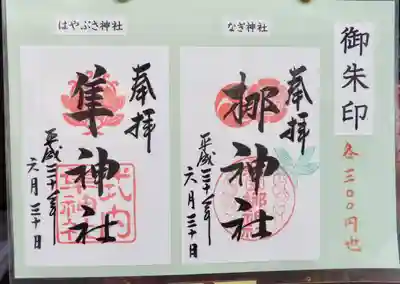 御朱印
各三〇〇円也
なぎ神社
奉拝
梛神社
平成三十年
六月三十日
はやぶさ神社
奉拝
隼神社
平成三十年
六月三十日
式内